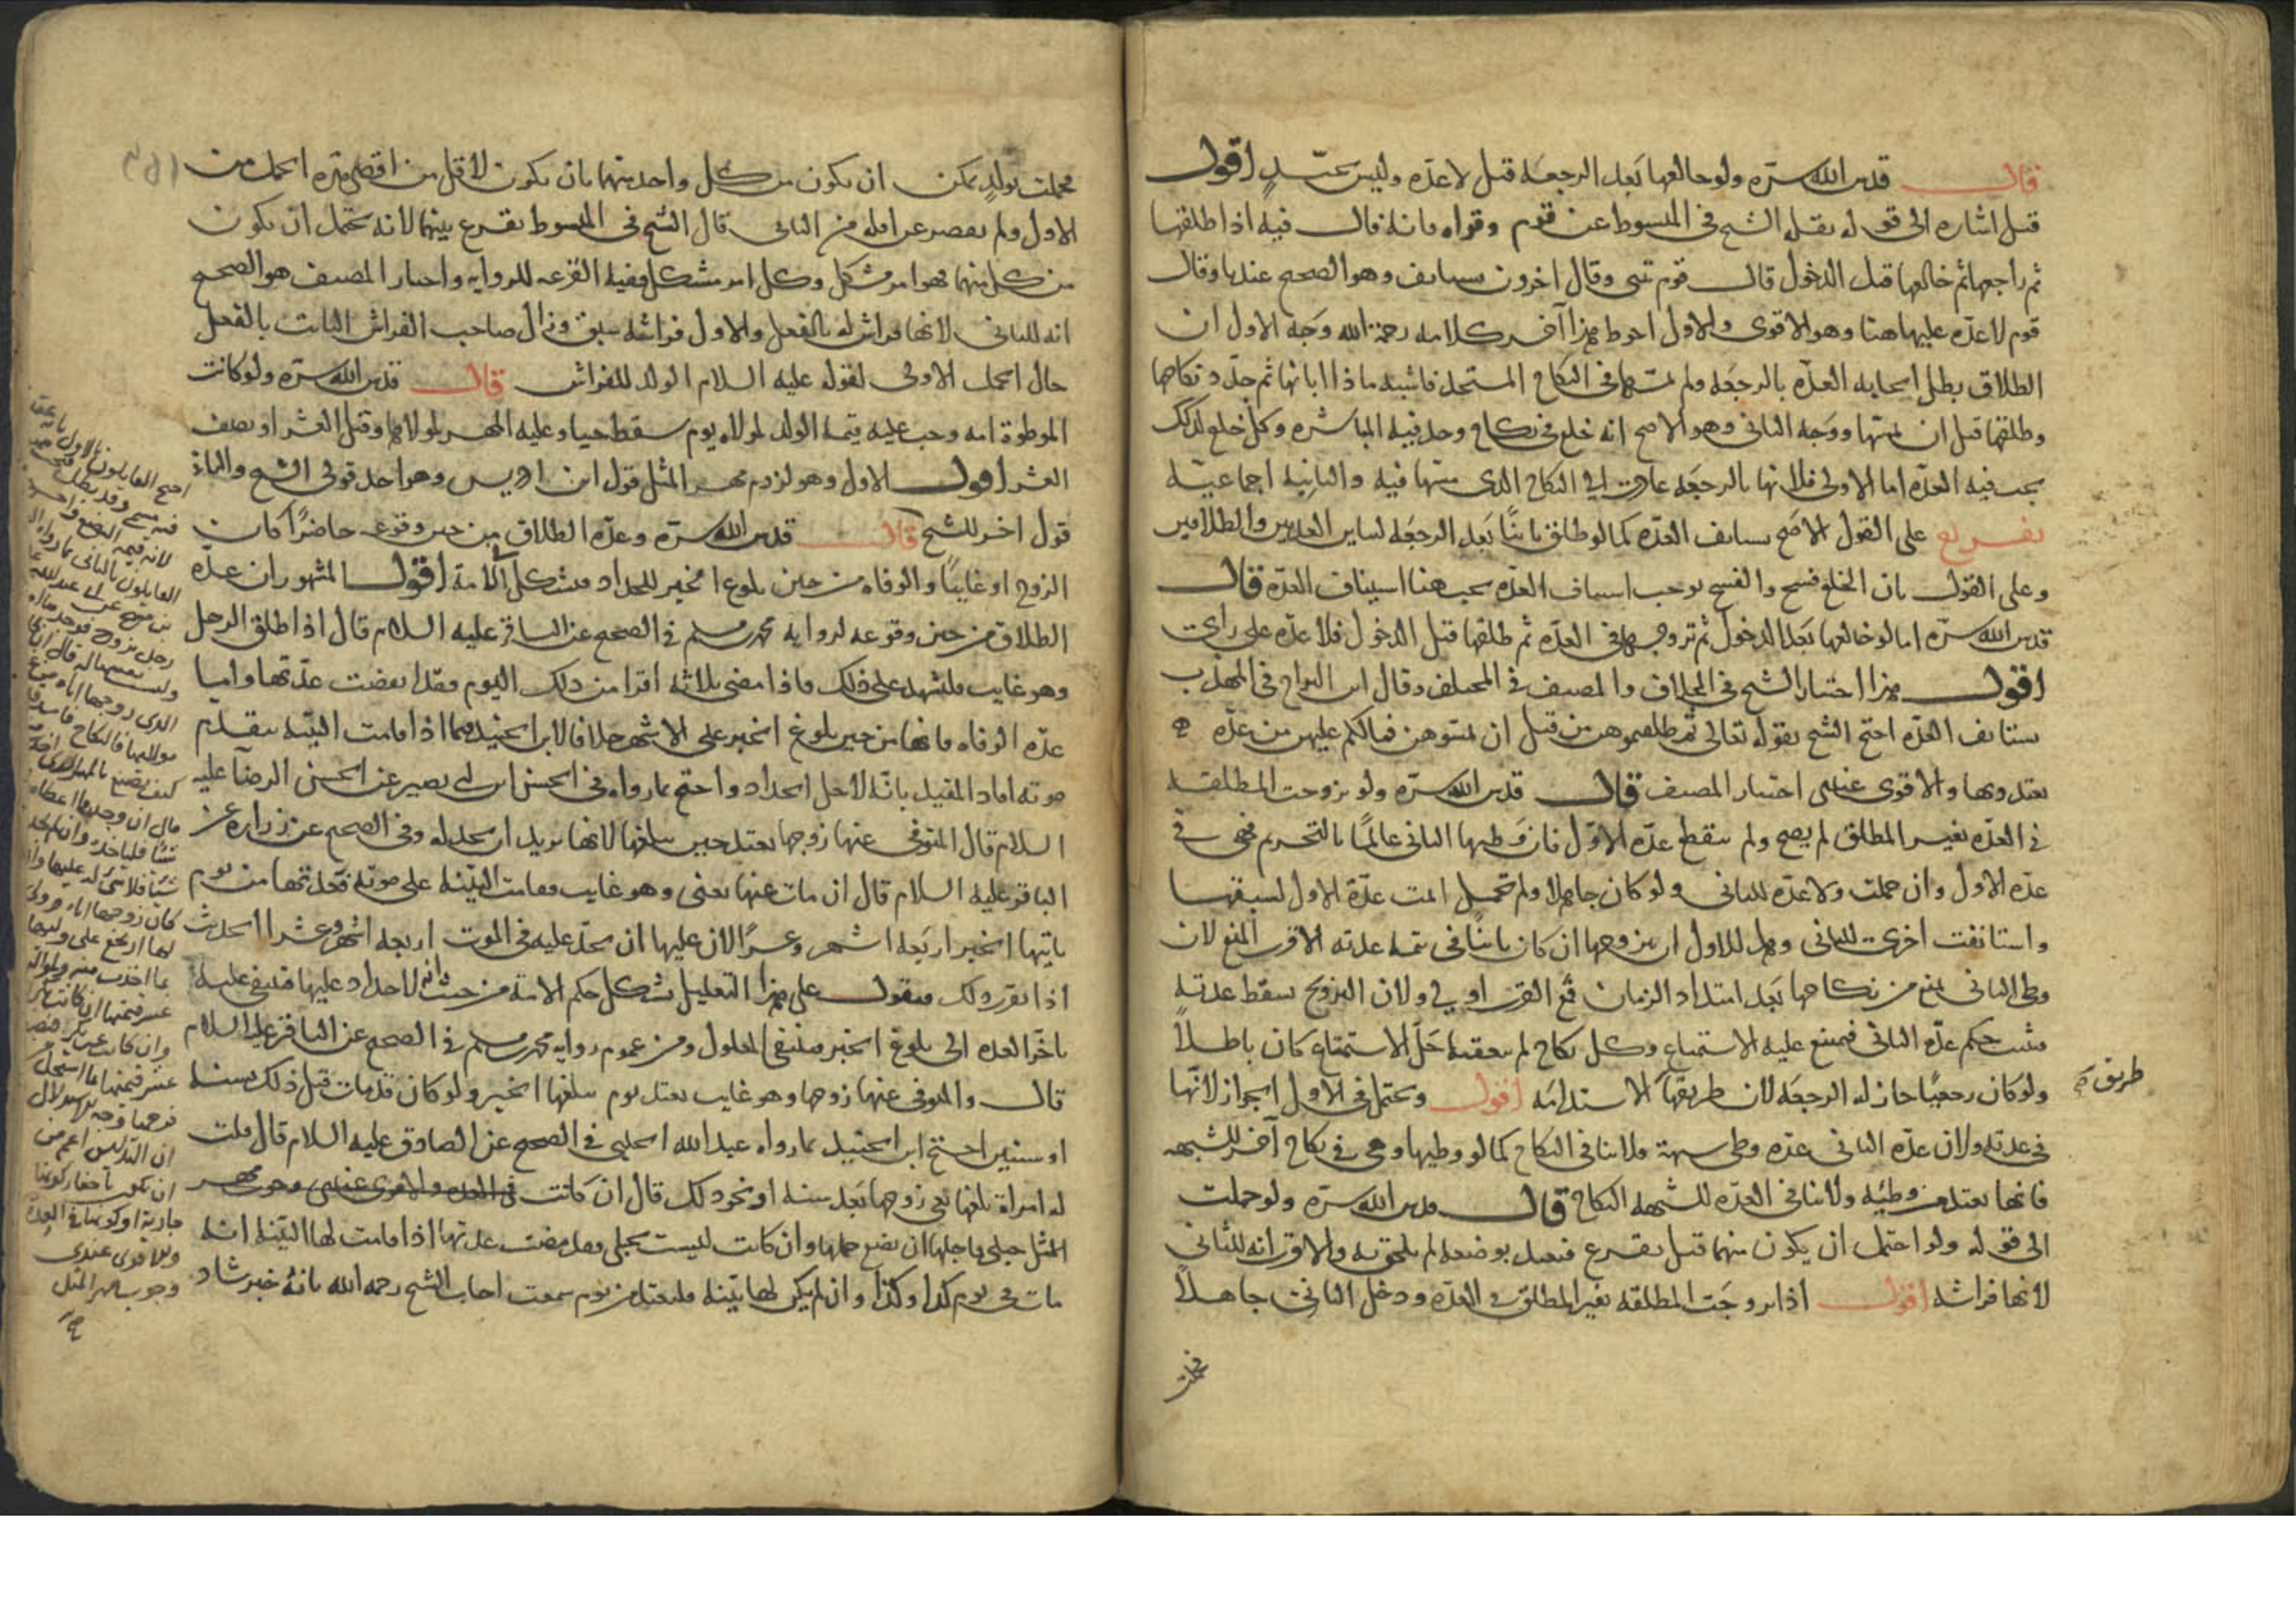 قال قدس الله سره ولو خالعها بعد الرجعة قيل لا عدة وليس بجيد اقول
قيل اشاره الى قول نقله الشيخ في المبسوط عن قوم وقواه فانه قال فيه اذا طلقها
ثم راجعها ثم خالعها قبل الدخول قال قوم تبنى وقال اخرون تستانف وهو الصحيح عندنا وقال
قوم لا عدة عليها هنا وهو الاقوى والاول احوط هذا آخر كلامه رحمة الله وجه الاول ان
الطلاق بطل ايجابه العدة بالرجعة ولم يمسها في النكاح المستحدث فاشبه ما اذا ابانها ثم جدد نكاحها
وطلقها قبل ان يمسها ووجه الثاني وهو الاصح انه خلع في نكاح وجد فيه المباشرة وكل خلع كذلك
يجب فيه العدة اما الاولى فلانها بالرجعة عادت الى النكاح الذي مسها فيه والثانية اجماعية
تفريع على القول الاصح تستانف العدة كما لو طلق بائنا بعد الرجعة لتغاير العدتين والطلاقين
وعلى القول بان الخلع فسخ والفسخ يوجب استيناف العدة يجب هنا استيناف العدة قال
قدس الله سره اما لو خالعها بعد الدخول ثم تزوجها في العدة ثم طلقها قبل الدخول فلا عدة على راي
اقول هذا اختيار الشيخ في الخلاف والمصنف في المختلف وقال ابن البراج في المهذب
تستانف العدة احتج الشيخ بقوله تعالى ثم طلقتموهن من قبل ان تمسوهن فما لكم عليهن من عدة
تعتدونها والاقوى عندي اختيار المصنف قال قدس الله سره ولو تزوجت المطلقة
في العدة بغير المطلق لم يصح ولم تنقطع عدة الاول فان وطيها الثاني عالما بالتحريم فهي في
عدة الاول وان حملت ولا عدة للثاني ولو كان جاهلا ولم تحمل اتمت عدة الاول لسبقها
واستانفت اخرى للثاني وهل للاول ان يتزوجها ان كان بائنا في تتمة عدته الاقرب المنع لان
وطي الثاني يمنع من نكاحها بعد امتداد الزمان فمع القرب اولى ولان التزويج يسقط عدته
فيثبت حكم عدة الثاني فيمتنع عليه الاستمتاع وكل نكاح لم يتعقبه حل الاستمتاع كان باطلا
ولو كان رجعيا جاز له الرجعة لان طريقها الاستدامة اقول ويحتمل في الاول الجواز لانها
في عدته ولان عدة الثاني عدة وطي شبهة فلا ينافي النكاح كما لو وطيها وهي في نكاح آخر للشبهه
فانها تعتد من وطئه ولا ينافي العدة للشبهة النكاح قال قدس الله سره ولو حملت
الى قوله ولو احتمل ان يكون منهما قيل يقرع فتعتد بوضعه لم يلحق به والاقرب انه للثاني
لانها فراشه اقول اذا تزوجت المطلقة بغير المطلق في العدة ودخل الثاني جاهلا
طريق
فحملت
فحملت بولد يمكن ان يكون من كل واحد منهما بان يكون لاقل من اقصى مدة الحمل من
الاول ولم يقصر عن اقله من الثاني قال الشيخ في المبسوط يقرع بينهما لانه يحتمل ان يكون
من كل منهما فهو امر مشكل وكل امر مشكل ففيه القرعة للرواية واختيار المصنف هو الصحيح
انه للثاني لانها فراش له بالفعل والاول فراشه سبق وزال صاحب الفراش الثابت بالفعل
حال الحمل الاولى لقوله عليه السلام الولد للفراش قال قدس الله سره ولو كانت
الموطوة امه وجب عليه قيمة الولد لمولاه يوم سقط حيا وعليه المهر لمولاها وقيل العشر او نصف
العشر اقول الاول وهو لزوم مهر المثل قول ابن ادريس وهو احد قولي الشيخ والثاني
قول اخر للشيخ قال قدس الله سره وعدة الطلاق من حين وقوعه حاضرا كان
الزوج او غايبا والوفاة من حين بلوغ الخبر للحداد فيشكل الامة اقول المشهور ان عدة
الطلاق من حين وقوعه لرواية محمد بن مسلم في الصحيح عن الباقر عليه السلام قال اذا طلق الرجل
وهو غايب فليشهد على ذلك فاذا مضى ثلاثة اقراء من ذلك اليوم فقد انقضت عدتها واما
عدة الوفاة فانها من حين بلوغ الخبر على الاشهر خلافا لابن الجنيد فيما اذا قامت البينة بتقدم
موته افاد المفيد بانه لاجل الحداد واحتج بما رواه في الحسن ابن ابي بصير عن الحسن الرضا عليه
السلام قال المتوفى عنها زوجها تعتد حين يبلغها لانها تريد ان تحد له وفي الصحيح عن زرارة عن
الباقر عليه السلام قال ان مات عنها يعني وهو غايب فقامت البينة على موته فعدتها من يوم
ياتيها الخبر اربعة اشهر وعشرا لان عليها ان تحد عليه في الموت اربعة اشهر وعشرا الحديث
اذا تقرر ذلك فنقول على هذا التعليل يشكل حكم الامة من حيث انه لا حداد عليها فتنتفي علية
تاخر العدة الى بلوغ الخبر فينتفي المعلول ومن عموم رواية محمد بن مسلم في الصحيح عن الباقر عليه السلام
قال والمتوفى عنها زوجها وهو غايب تعتد يوم يبلغها الخبر ولو كان قد مات قبل ذلك بسنة
او سنتين احتج ابن الجنيد بما رواه عبد الله الحلبي في الصحيح عن الصادق عليه السلام قال قلت
له امراة بلغها نعي زوجها بعد سنة او نحو ذلك قال ان كانت
حبلى فاجلها ان تضع حملها وان كانت ليست بحبلى فقد مضت عدتها اذا قامت لها البينة انه
مات في يوم كذا وكذا وان لم يكن لها بينة فلتعتد من يوم سمعت اجاب الشيخ رحمه الله بانه خبر شاذ
احتج القايلون بالاول
العايلون بالثاني بما رواه
رجل تزوج
كيف يصنع بالمهر الذي
قال ان وجد مما اعطاها
شيئا فلياخذه وان لم يجد
شيئا فلا شيء له عليها وان
كان زوجها اياه ولي
لها ارتجع على وليها
بما اخذت منه ولمواليه
عشر قيمتها ان كانت بكرا
وان كانت غير بكر فنصف
عشر قيمتها بما استحل
من فرجها وجه الاستدلال
ان التدليس اعم من
ان يكون باخفاء كونها
جارية او كونها في العدة
والاقوى عندي
وجوب مهر المثل